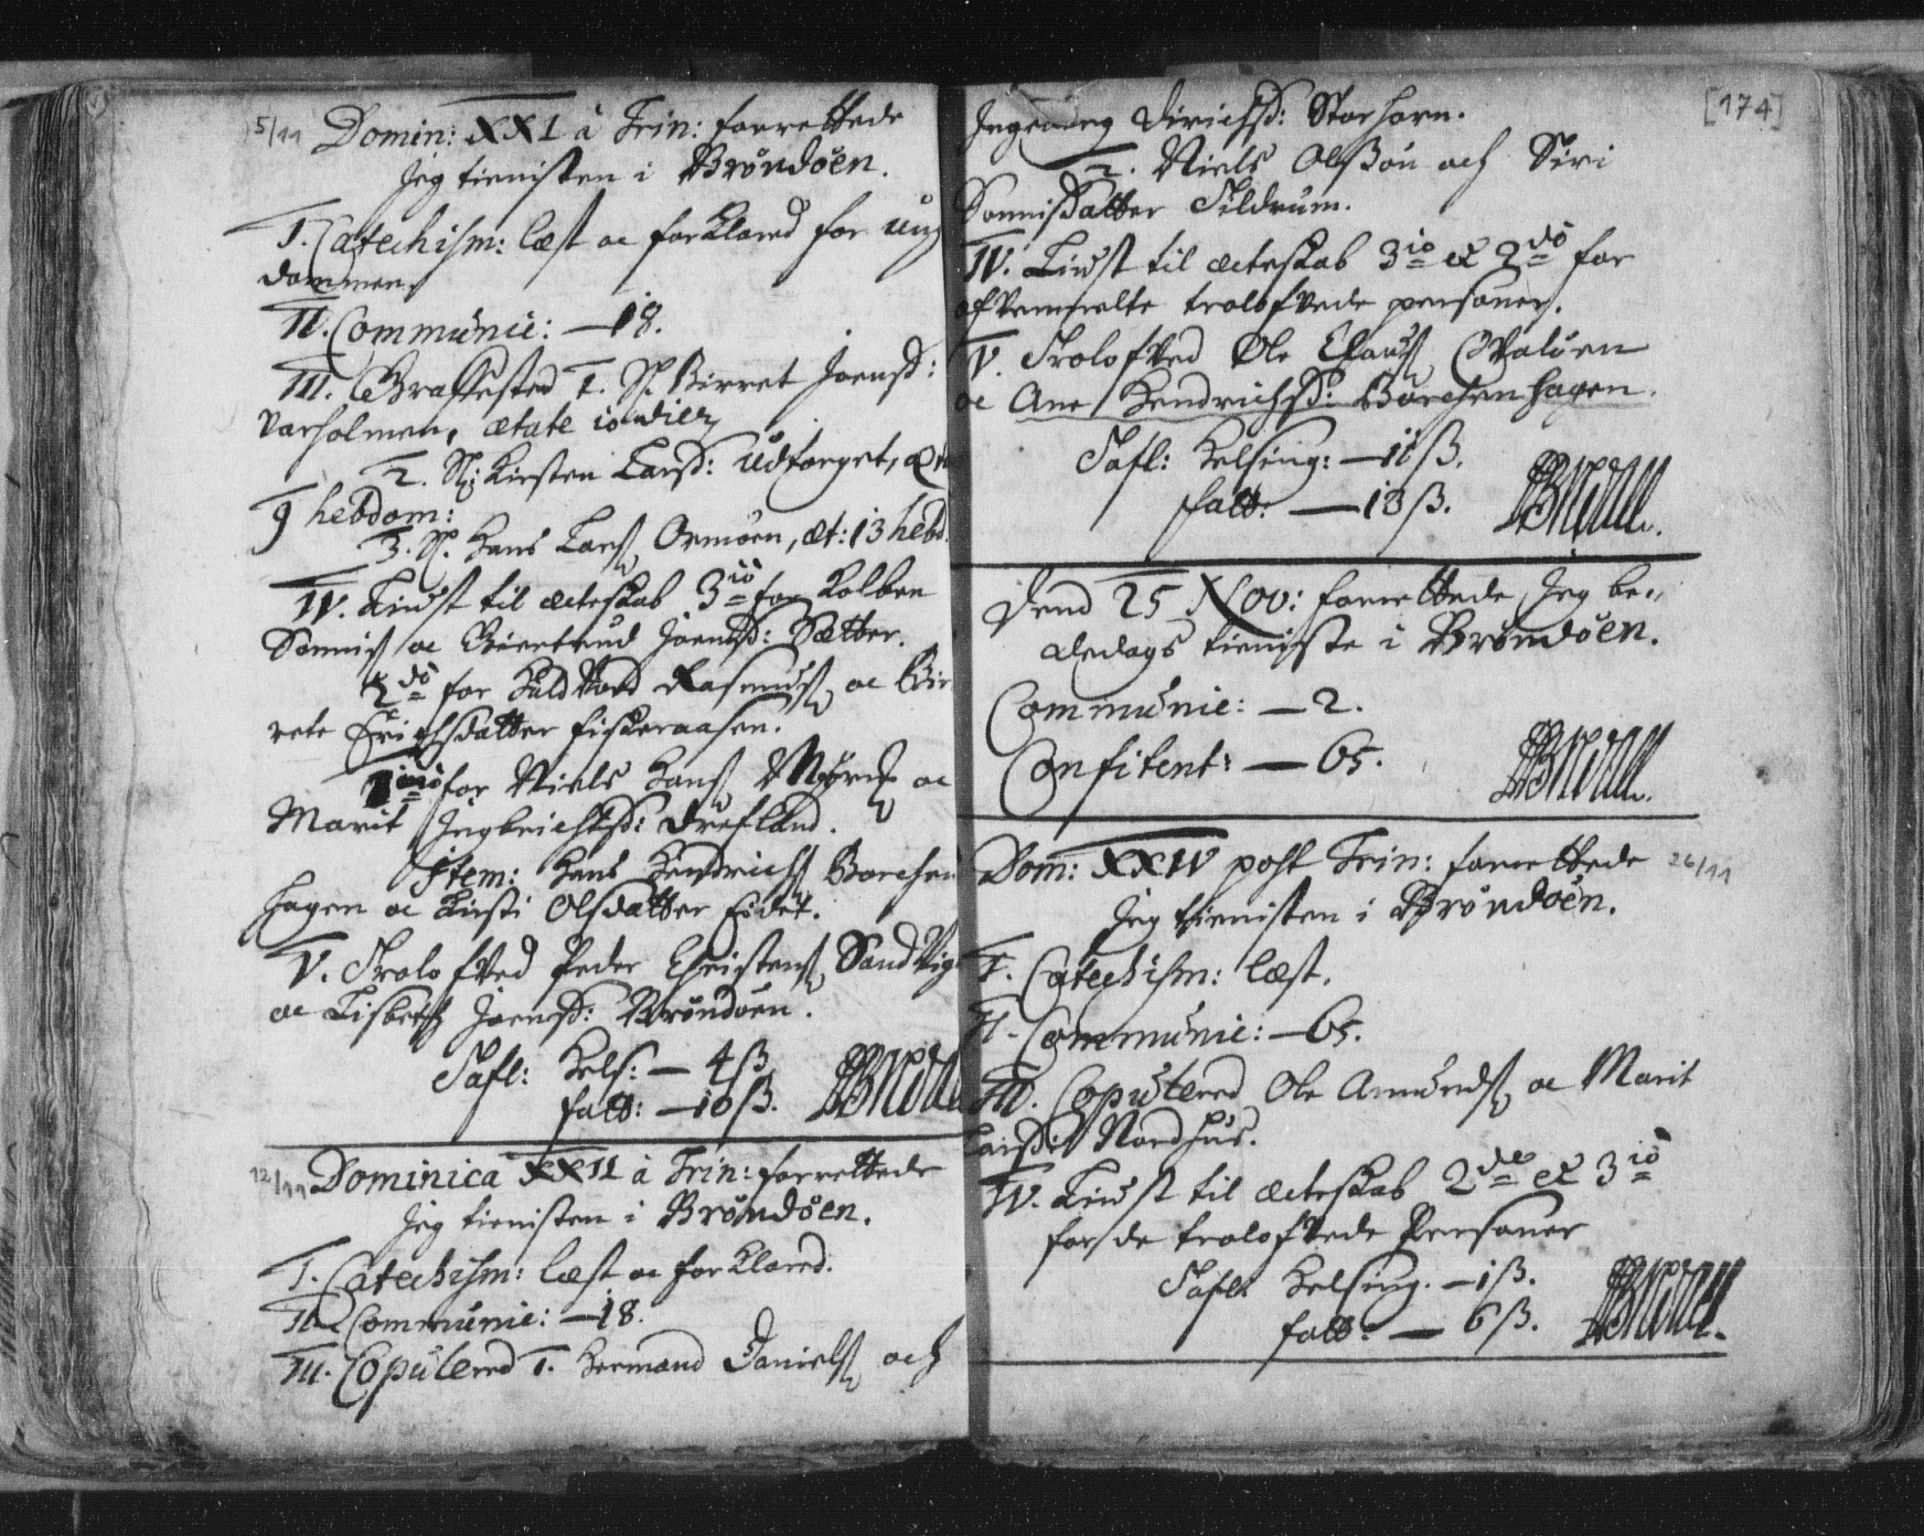 5/11 Domin: XXI à Trin: forrettede
Jeg tienisten i Brøndøen.
I. Catechism: læst oc forklared for ung
dommen.
II. Communic: — 18.
III. Graffested 1. Sl. Birret Joensd:
Varholmen, ætate 10 dier,
2. Sl: Kirsten Larsd: Udtorget, æt
9 hebdom:
3. Sl. Hans Lars. Ormøen, æt: 13 hebd.
IV. Liust til ecteskab 3io for Kolben
Sonnis. oc Giertrud Joensd: Sætter.
2do for Haldvord Rasmus. oc Bir
rete Erichsdatter Fiskeraasen.
1mo for Niels Hans. oc
Marit Ingbrichtsd: Drefland.
Item: Hans Hendrichs. Borchen
hagen oc Kirsti Olsdatter Eidet.
V. Trolofved Peder Christens. Sandvig
oc Lisbeth Joensd: Brøndøen.
Tafl: Hels: — 4 ß.
fatt: — 10 ß.
12/11 Dominica XXII à Trin: forrettede
Jeg tienisten i Brøndøen.
I. Catechism: læst oc forklared.
II. Communic: — 18.
III. Copulered 1. Hermand Daniels. och
[174]
Ingeborg Dirichsd: Storhorn.
2. Niels Olsßøn och Siri
Sonnisdatter Tildrum.
IV. Liust til ecteskab 3io et 2do for
ofvermelte trolofvede personer.
V. Trolofved Ole Claus. Hvaløen
oc Ane Hendrichsd: Borchenhagen.
Tafl: Helsing: — 16 ß.
fatt: — 18 ß.
Dend 25 Nov: forrettede Jeg be-
dedags tieniste i Brøndøen.
Communic: — 2.
Confitent: — 65.
Dom: XXIV post Trin: forrettede 26/11
Jeg tienisten i Brøndøen.
I. Catechism: læst.
II. Communic: — 65.
III. Copulered Ole Amunds. oc Marit
Nordhus.
IV. Liust til ecteskab 2do et 3io
for de trolofvede Personer
Tafl: Helsing. — 1 ß.
fatt: — 6 ß.